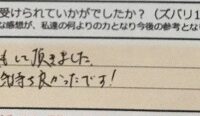 受けられていかがでしたか？（ズバリ1
な感想が、私達の何よりの力となり今後の参考となり
もして頂きました。
気持ち良かったです！